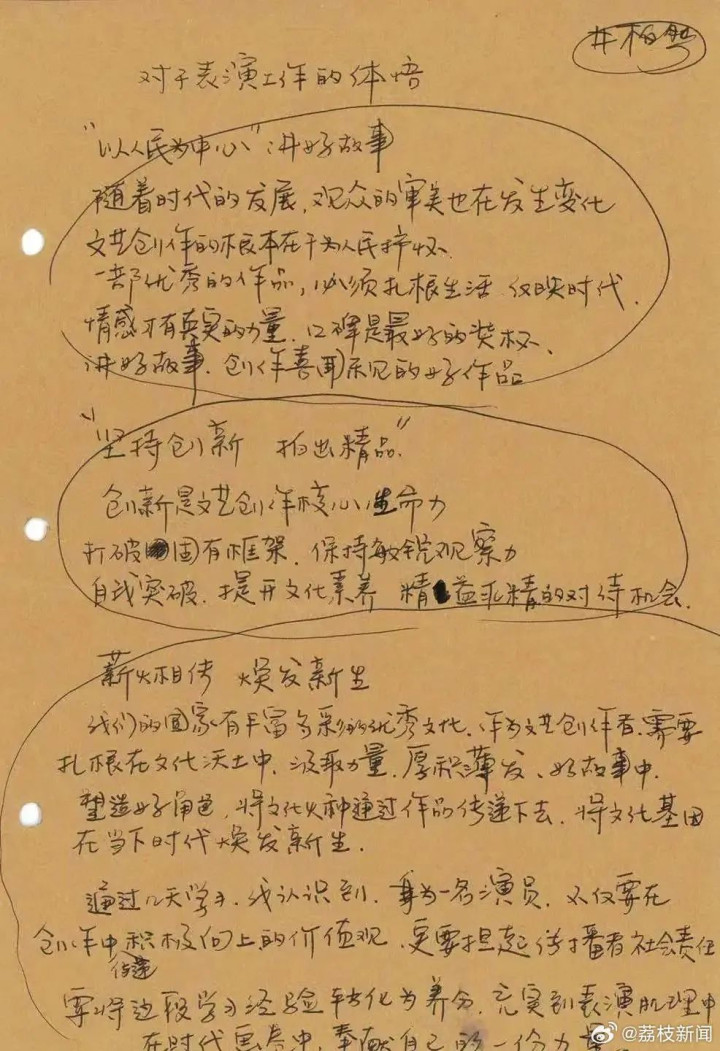 井柏然
对于表演工作的体悟
"以人民为中心"讲好故事
随着时代的发展,观众的审美也在发生变化
文艺创作的根本在于为人民抒怀、
一部优秀的作品,必须扎根生活 反映时代、
情感才有真实的力量、口碑是最好的奖杯、
讲好故事、创作喜闻乐见的好作品
"坚持创新 拍出精品"
创新是文艺创作核心生命力
打破固有框架、保持敏锐观察力
自我突破、提升文化素养 精益求精的对待机会、
薪火相传 焕发新生
我们的国家有丰富多彩的优秀文化、作为文艺创作者、需要
扎根在文化沃土中、汲取力量、厚积薄发、好故事中
塑造好角色,将文化火种通过作品传递下去、将文化基因
在当下时代焕发新生.
通过几天学习、我认识到、身为一名演员、不仅要在
创作中传递积极向上的价值观、更要担起传播者社会责任
要将这段学习经验转化为养分、充实到表演肌理中
在时代画卷中,奉献自己的一份力量
@荔枝新闻